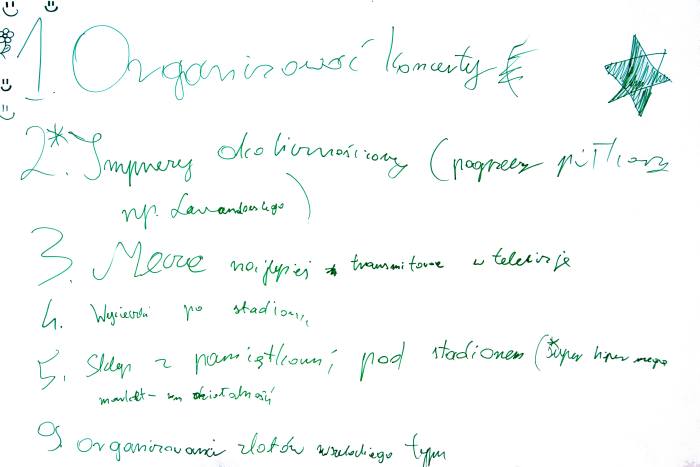 1. Organizować koncerty
2.* Imprezy okolicznościowe (pogrzeby piłkarzy
np. Lewandowskiego)
3. Mecze najlepiej transmitowane w telewizje
4. Wycieczki po stadionie
5. Sklep z pamiątkami pod stadionem (super hiper mega
market
9. organizowanie zlotów wszelakiego typu